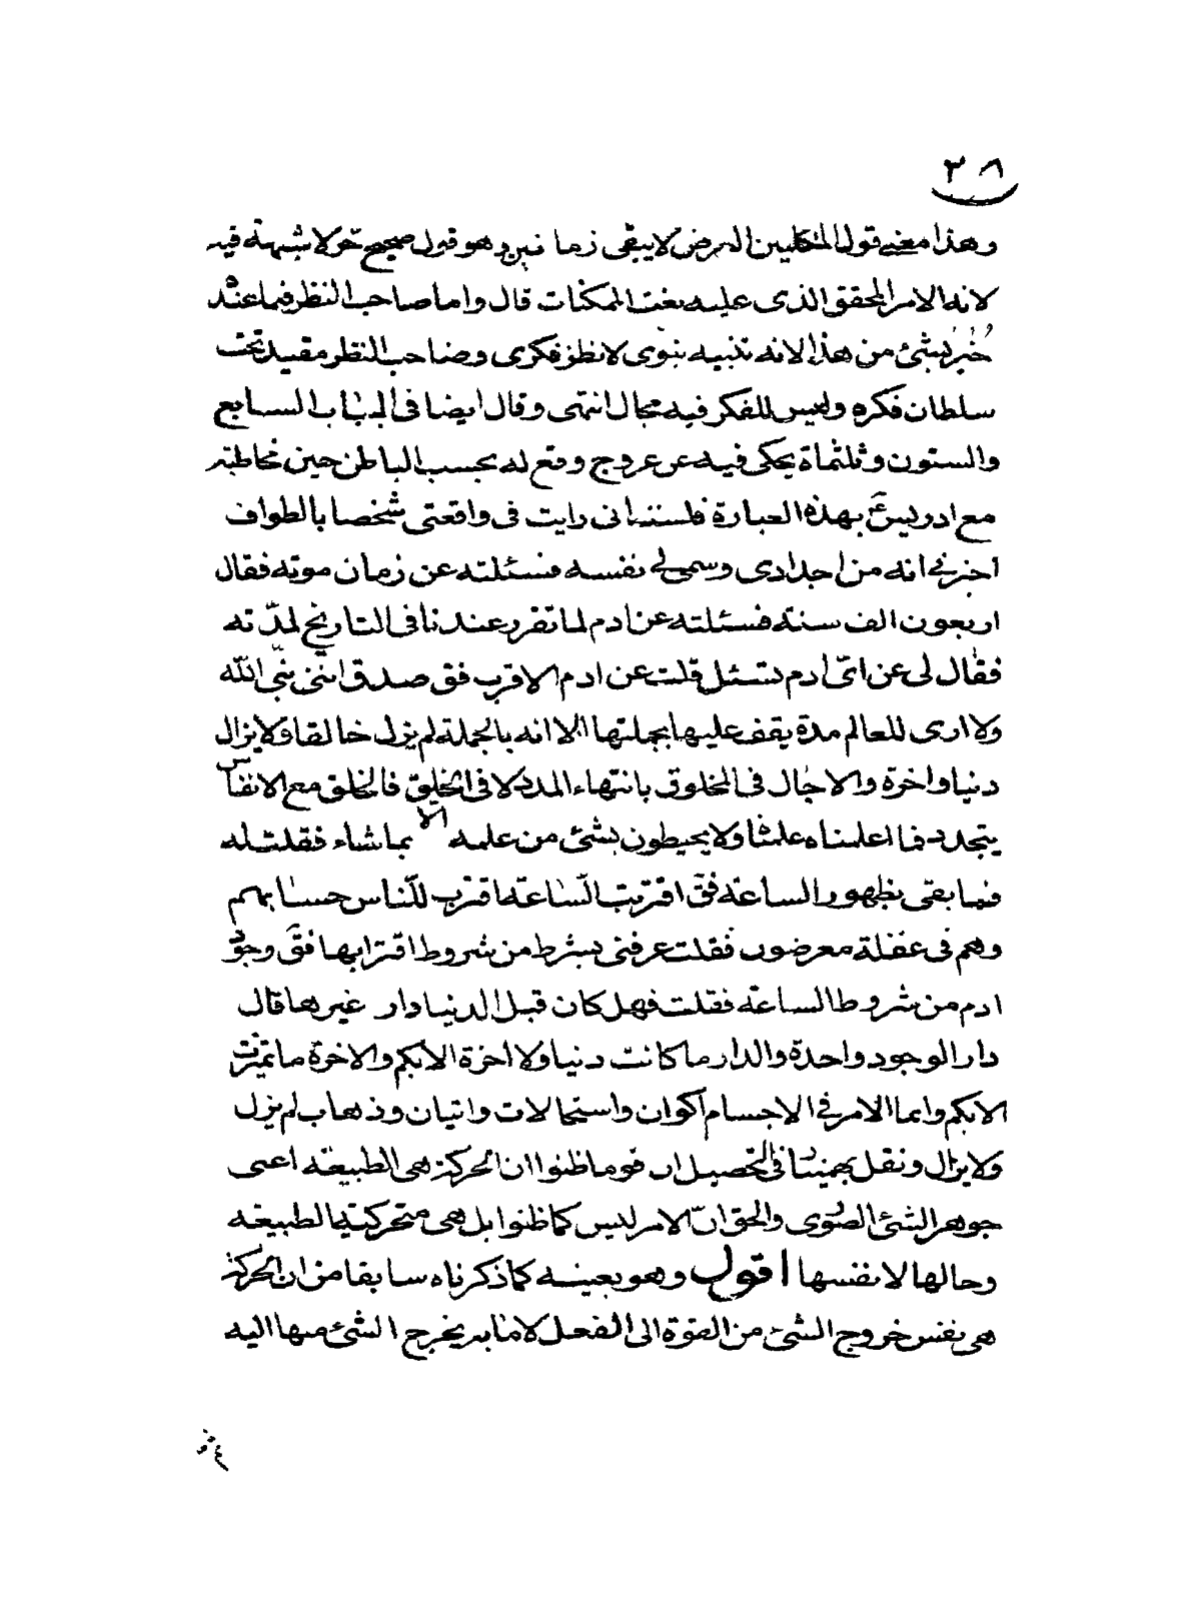 ٣٨
وهذا معنى قول المتكلمين العرض لا يبقى زمانين وهو قول صحيح حر لا شبهة فيه
لانه الامر المحقق الذى عليه نعت الممكنات قال واما صاحب النظر فما عنده
خبر بشئ من هذا لانه تنبيه نبوى لا نظر فكرى وصاحب النظر مقيد تحت
سلطان فكره وليس للفكر فيه مجال انتهى وقال ايضا فى الباب السابع
والستون وثلثماة يحكى فيه عن عروج وقع له بحسب الباطن حين مخاطبته
مع ادريس ع بهذه العبارة قلت انى رايت فى واقعتى شخصا بالطواف
اخبرنى انه من اجدادى وسمى لى نفسه فسئلته عن زمان موته فقال
اربعون الف سنة فسئلته عن ادم لما تقرر عندنا فى التاريخ لمدته
فقال لى عن اىّ ادم تسئل قلت عن ادم الاقرب فق صدق اننى نبىّ اللّه
ولا ارى للعالم مدة يقف عليها بجملتها الا انه بالجملة لم يزل خالقا ولا يزال
دنيا واخرة والاجال فى المخلوق بانتهاء المدد لا فى الخلق فالخلق مع الانفاس
يتجدد فما اعلمناه علمنا ولا يحيطون بشئ من علمه الا بما شاء فقلت له
فما بقى بظهور الساعة فق اقتربت السّاعة اقترب للنّاس حسابهم
وهم فى غفلة معرضون فقلت عرفنى بشرط من شروط اقترابها فق وجود
ادم من شروط الساعة فقلت فهل كان قبل الدنيا دار غيرها قال
دار الوجود واحدة والدار ما كانت دنيا ولا اخرة الا بكم والاخرة ما تميزت
الا بكم وانما الامر فى الاجسام اكوان واستحالات واتيان وذهاب لم يزل
ولا يزال ونقل بهمنيار فى التحصيل ان قوما ظنوا ان الحركة هى الطبيعة اعنى
جوهر الشئ الصورى والحق انّ الامر ليس كما ظنوا بل هى متحركية الطبيعة
وحالها لا نفسها اقول وهو بعينه كما ذكرناه سابقا من ان الحركة
هى نفس خروج الشئ من القوة الى الفعل لا ما به يخرج الشئ منها اليه